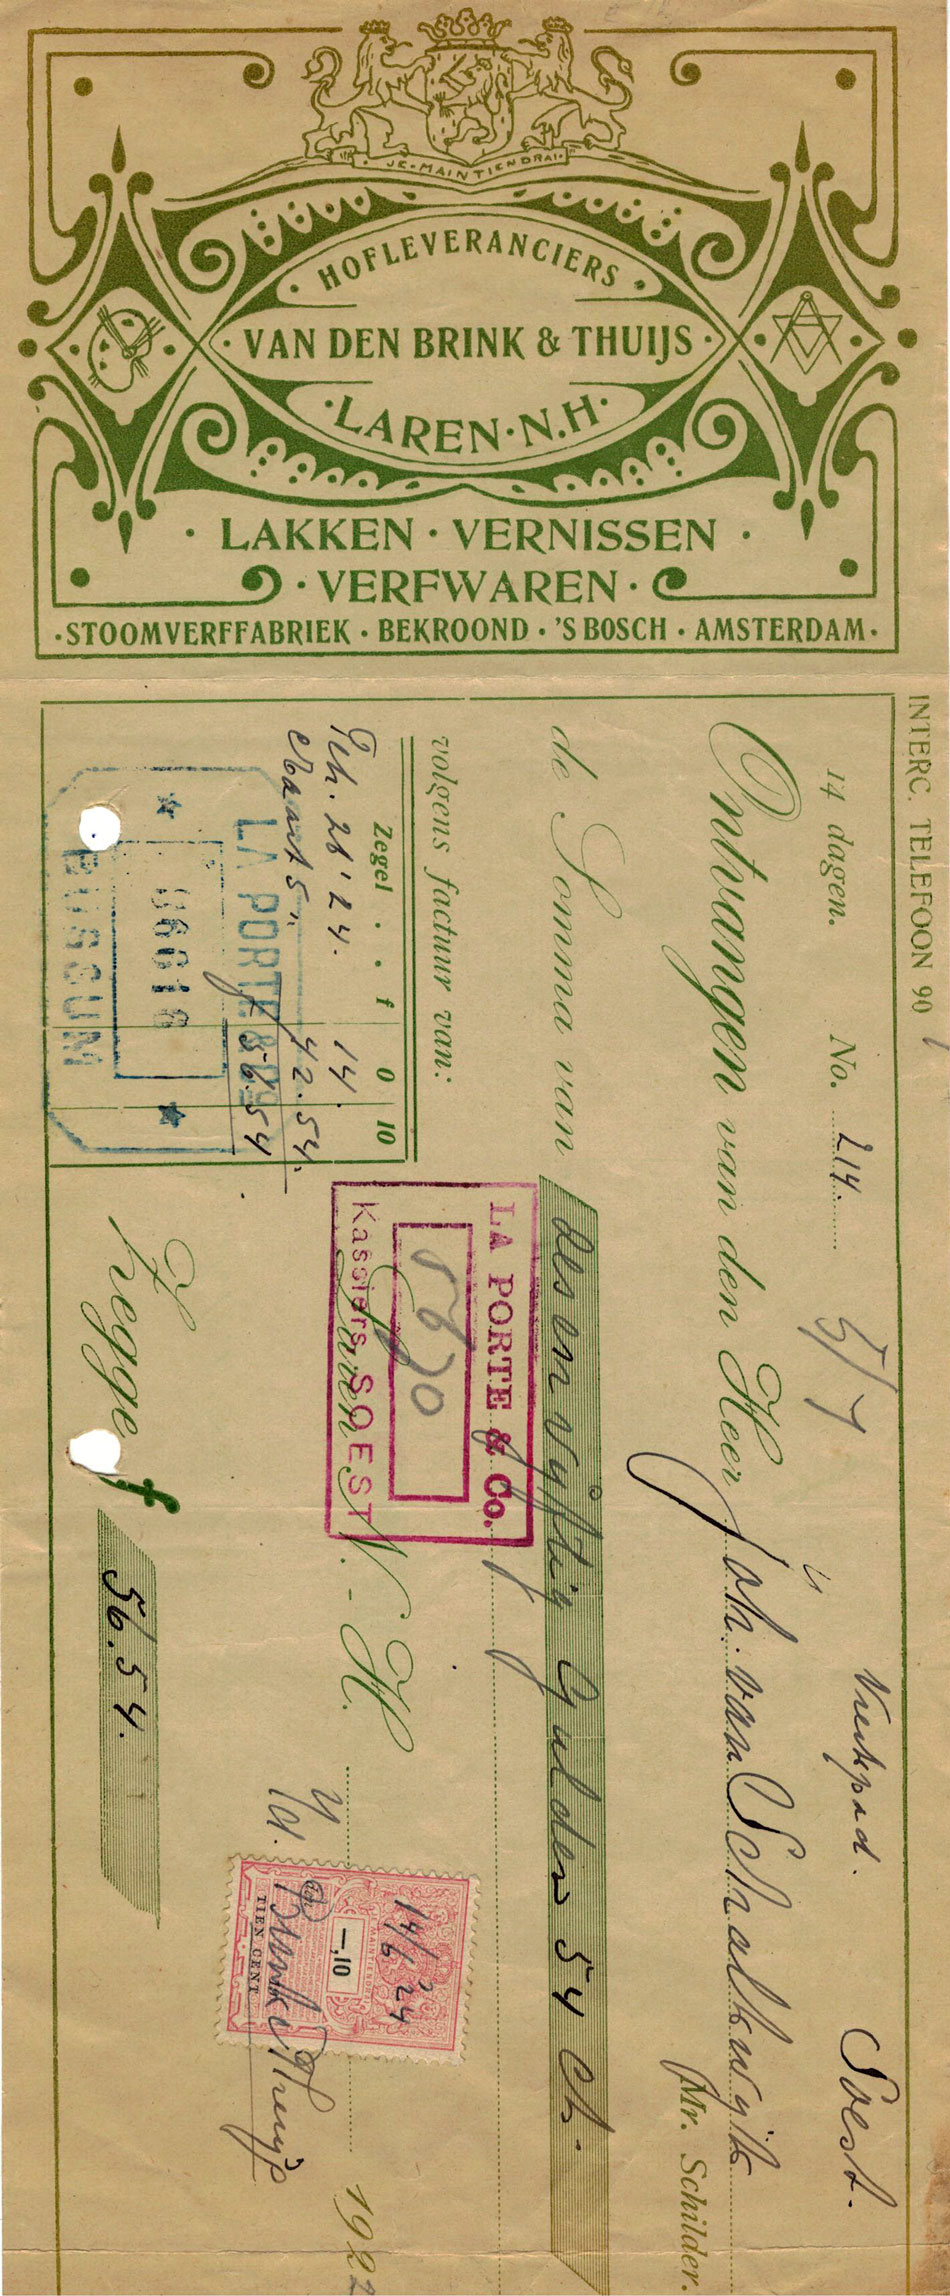 JE·MAINTIENDRAI·
· HOFLEVERANCIERS ·
· VAN DEN BRINK & THUIJS ·
· LAREN · N.H ·
· LAKKEN · VERNISSEN ·
· VERFWAREN ·
· STOOMVERFFABRIEK · BEKROOND · 'S BOSCH · AMSTERDAM ·
INTERC. TELEFOON 90
14 dagen. No. 214. Soest.
Ontvangen van den Heer Joh. van Schalkwijk
Mr. Schilder.
de Somma van Zes en vijftig Gulden 54 ct.
volgens factuur van:
Zegel . . f 0 10
Feb. 28 '24. 14.
Maart 5 " 42.54.
f 56.54
LA PORTE & Co.
BUSSUM
LA PORTE & Co.
Kassiers SOEST
Laren N.-H. 192
14/6 '24
MAINTIENDRAI
—,10
TIEN CENT
Zegge f 56.54.